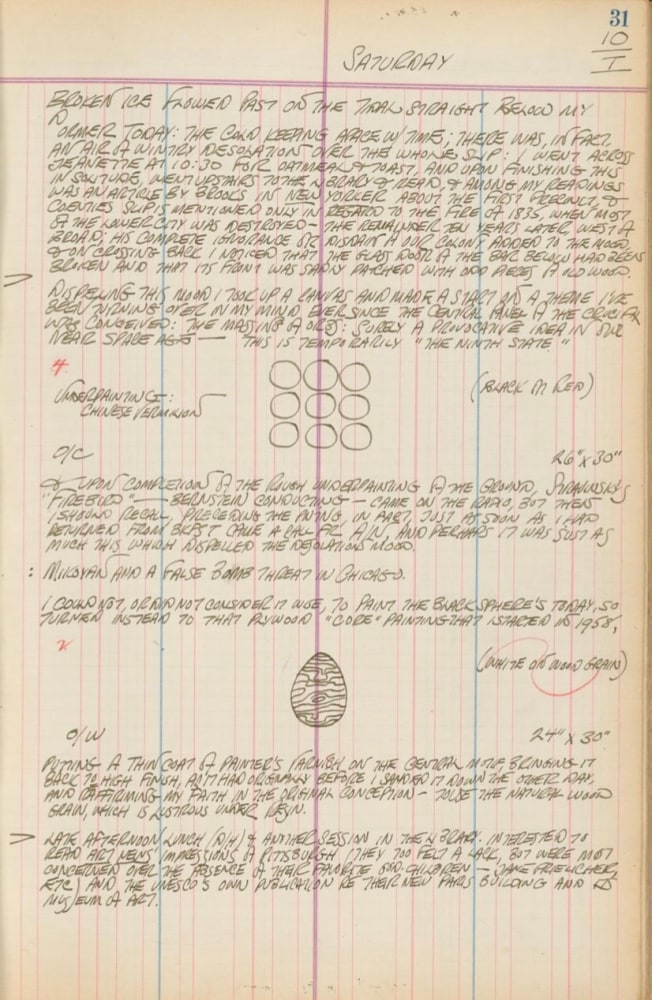 31
10
I
SATURDAY
BROKEN ICE FLOWED PAST ON THE TIDAL STRAIGHT BELOW MY
DORMER TODAY: THE COLD KEEPING APACE W/ TIME; THERE WAS, IN FACT,
AN AIR OF WINTRY DESOLATION OVER THE WHOLE SLIP: I WENT ACROSS
JEANETTE AT 10:30 FOR OATMEAL & TOAST, AND UPON FINISHING THIS
IN SOLITUDE, WENT UPSTAIRS TO THE LIBRARY & READ, & AMONG MY READINGS
WAS AN ARTICLE BY BROOKS IN NEW YORKER ABOUT THE FIRST PRECINCT, &
COENTIES SLIP IS MENTIONED ONLY IN REGARD TO THE FIRE OF 1835, WHEN MOST
OF THE LOWER CITY WAS DESTROYED — THE REMAINDER TEN YEARS LATER WEST OF
BROAD; HIS COMPLETE IGNORANCE OR DISDAIN OF OUR COLONY ADDED TO THE MOOD,
& ON CROSSING BACK I NOTICED THAT THE GLASS DOOR OF THE BAR BELOW HAD BEEN
BROKEN AND THAT ITS FRONT WAS SADLY PATCHED WITH ODD PIECES OF OLD WOOD.
> DISPELLING THIS MOOD I TOOK UP A CANVAS AND MADE A START ON A THEME I'VE
BEEN TURNING OVER IN MY MIND EVER SINCE THE CENTRAL PANEL OF THE CRUCIFIX
WAS CONCEIVED: THE MASSING OF ORBS: SURELY A PROVOCATIVE IDEA IN OUR
NEAR SPACE AGE — THIS IS TEMPORARILY "THE NINTH STATE"
4.
UNDERPAINTING:
CHINESE VERMILION
(BLACK ON RED)
O/C
26" X 30"
& UPON COMPLETION OF THE ROUGH UNDERPAINTING OF THE GROUND, STRAVINSKY'S
"FIREBIRD" — BERNSTEIN CONDUCTING — CAME ON THE RADIO, BUT THEN
I SHOULD RECALL, PRECEDING THE PNTNG, IN FACT, JUST AS SOON AS I HAD
RETURNED FROM BKFST CAME A CALL FR. A/N, AND PERHAPS IT WAS JUST AS
MUCH THIS WHICH DISPELLED THE DESOLATION MOOD.
: MIKOYAN AND A FALSE BOMB THREAT IN CHICAGO.
I COULD NOT, OR DID NOT CONSIDER IT WISE, TO PAINT THE BLACK SPHERE'S TODAY, SO
TURNED INSTEAD TO THAT PLYWOOD "CORE" PAINTING THAT I STARTED IN 1958,
(WHITE ON WOOD GRAIN)
O/W
24" X 30"
PUTTING A THIN COAT OF PAINTER'S VARNISH ON THE CENTRAL MOTIF, BRINGING IT
BACK TO HIGH FINISH, AS IT HAD ORIGINALLY BEFORE I SANDED IT DOWN THE OTHER DAY,
AND REAFFIRMING MY FAITH IN THE ORIGINAL CONCEPTION — TO USE THE NATURAL WOOD
GRAIN, WHICH IS LUSTROUS UNDER RESIN.
> LATE AFTERNOON LUNCH (D/H) & ANOTHER SESSION IN THE LIBRARY. INTERESTED TO
READ ART NEWS' IMPRESSIONS OF PITTSBURGH (THEY TOO FELT A LACK, BUT WERE MOST
CONCERNED OVER THE ABSENCE OF THEIR FAVORITE GOD-CHILDREN — JANE FREILICHER,
ETC) AND THE UNESCO'S OWN PUBLICATION RE THEIR NEW PARIS BUILDING AND ITS
MUSEUM OF ART.